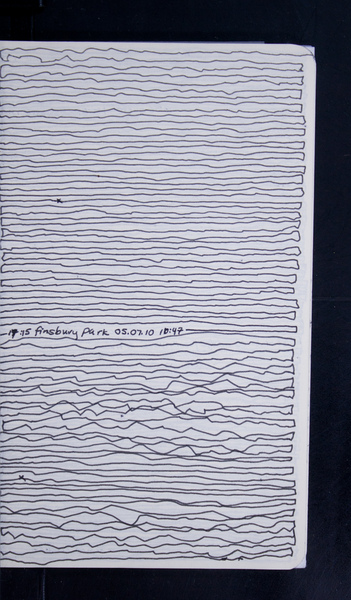 17:15 finsbury Park 05.07.10 18:47